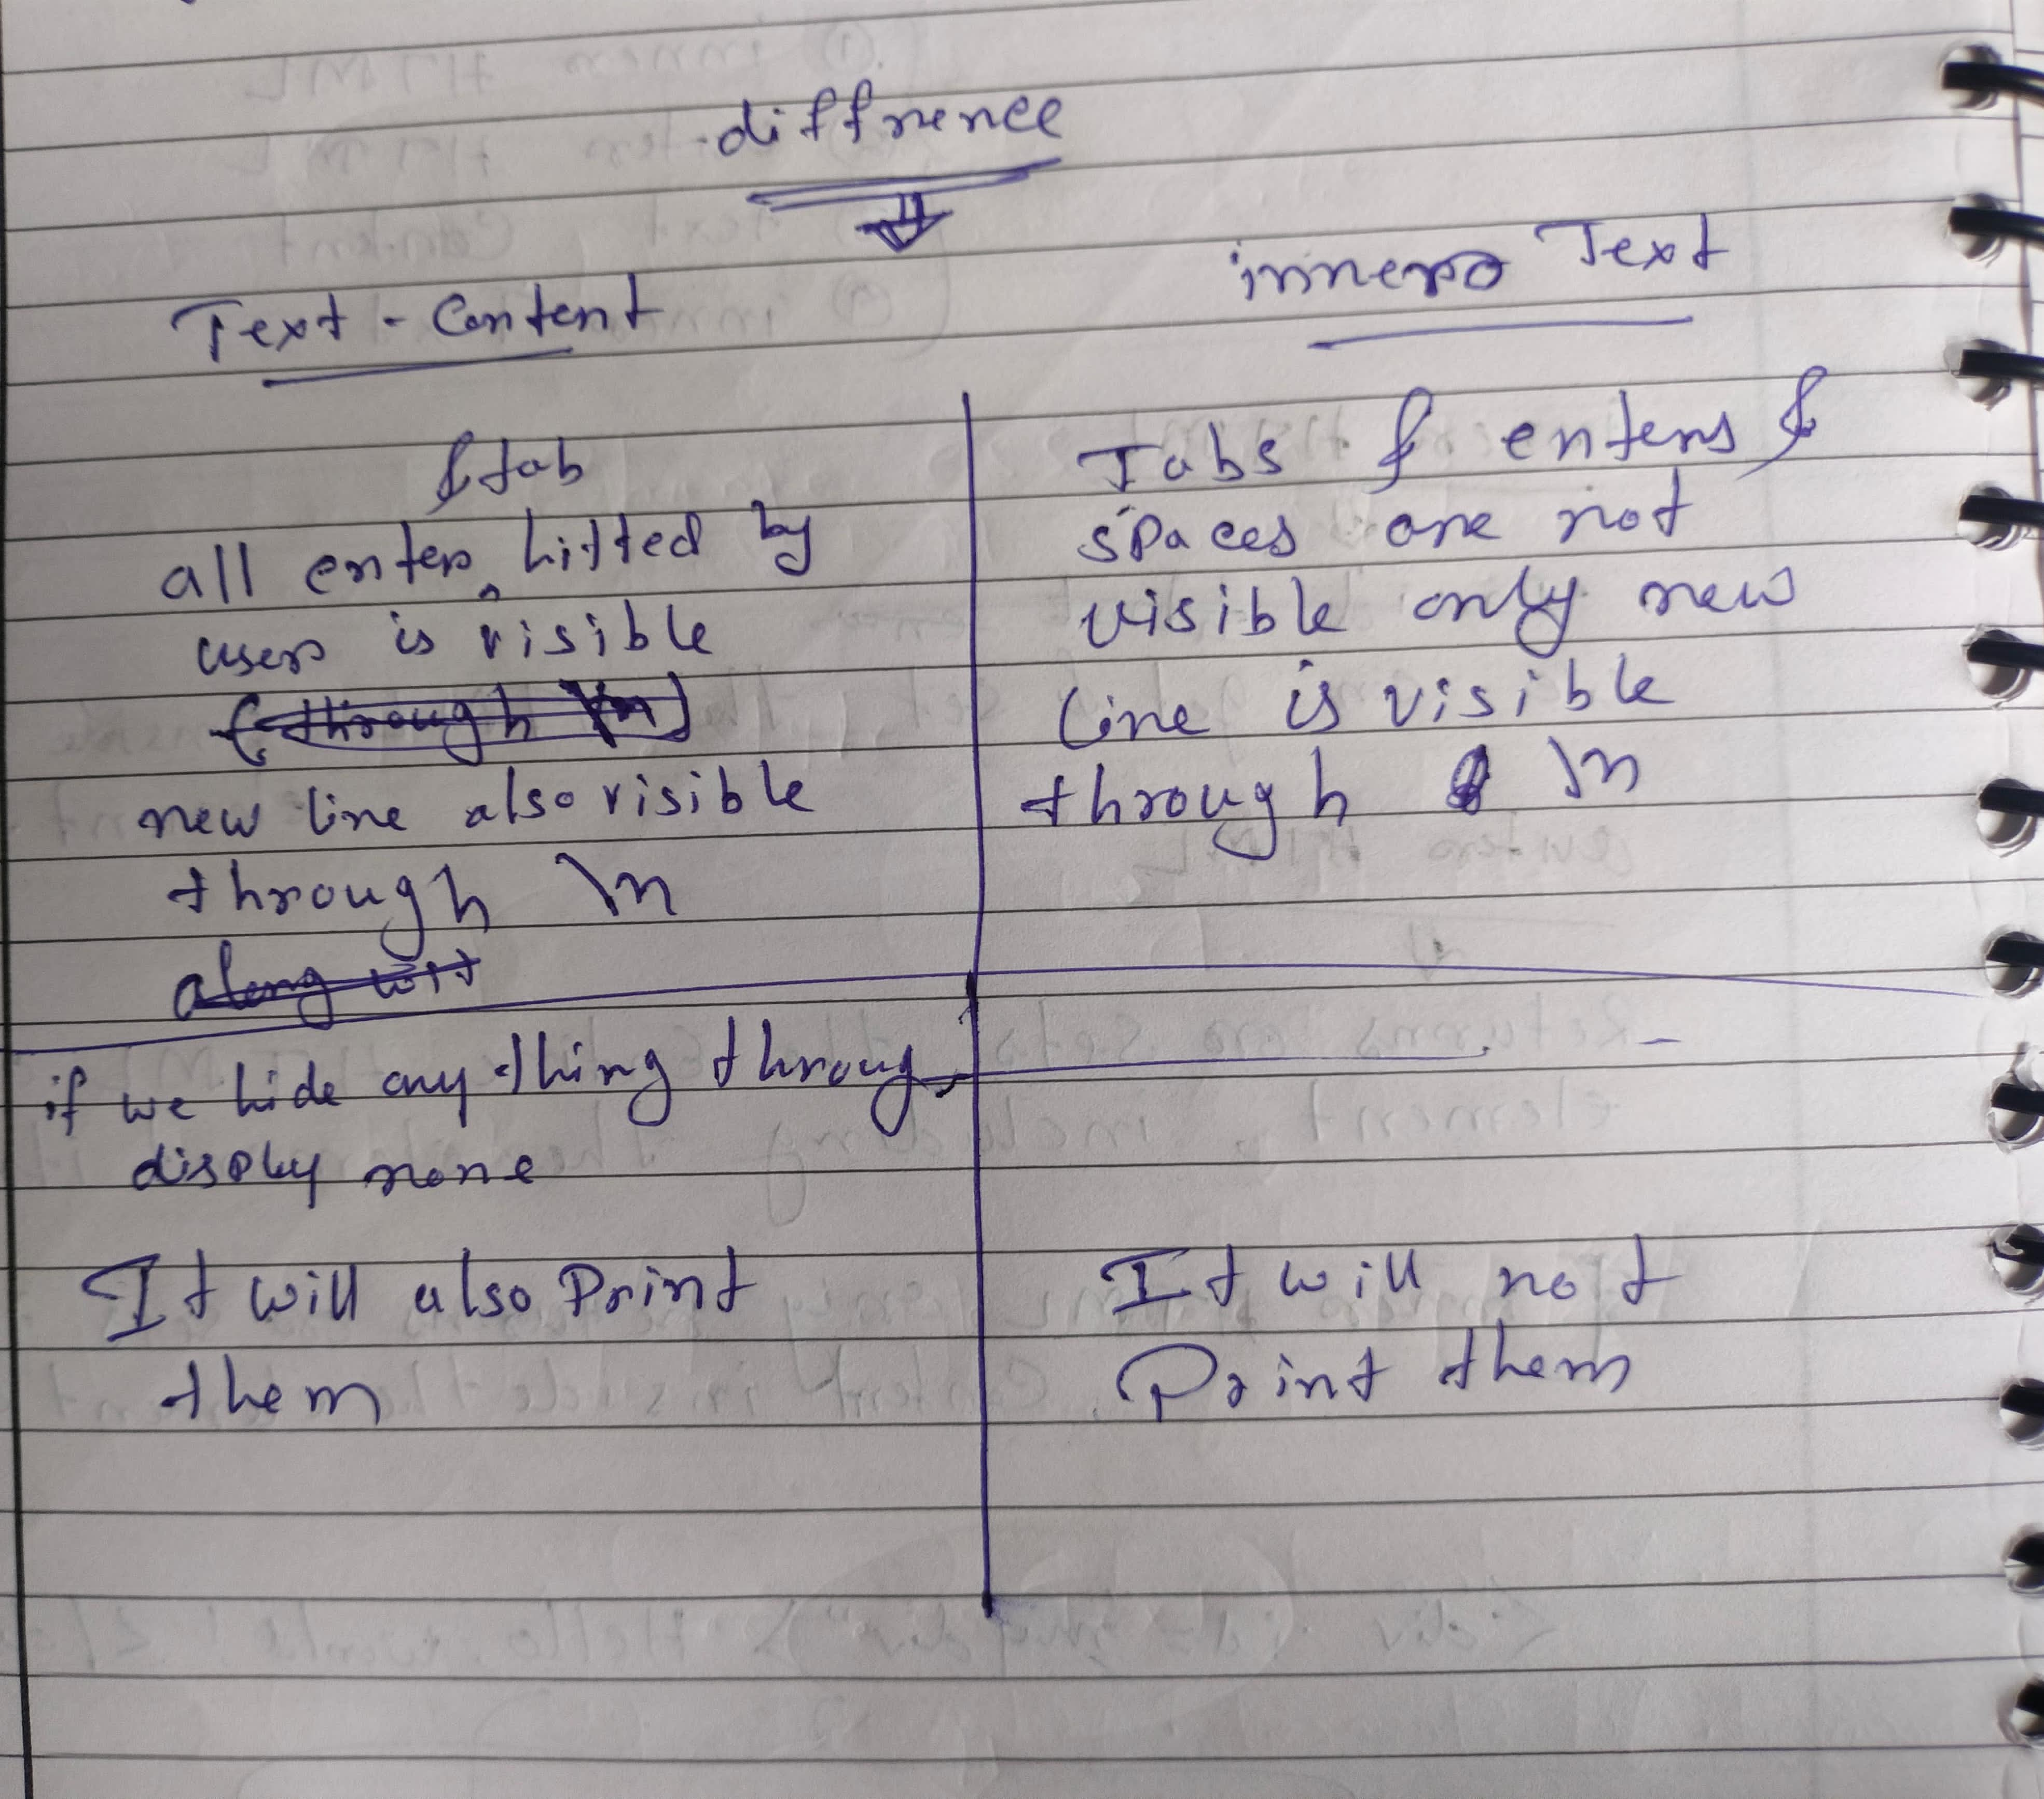 diffrence
Text - Content
inner Text
& tab
all enter hitted by
user is visible
(through \n)
new line also visible
through \n
along wit
Tabs & enters &
spaces are not
visible only new
line is visible
through \n
if we hide any thing throug
disply none
It will also Print
them
It will not
Print them